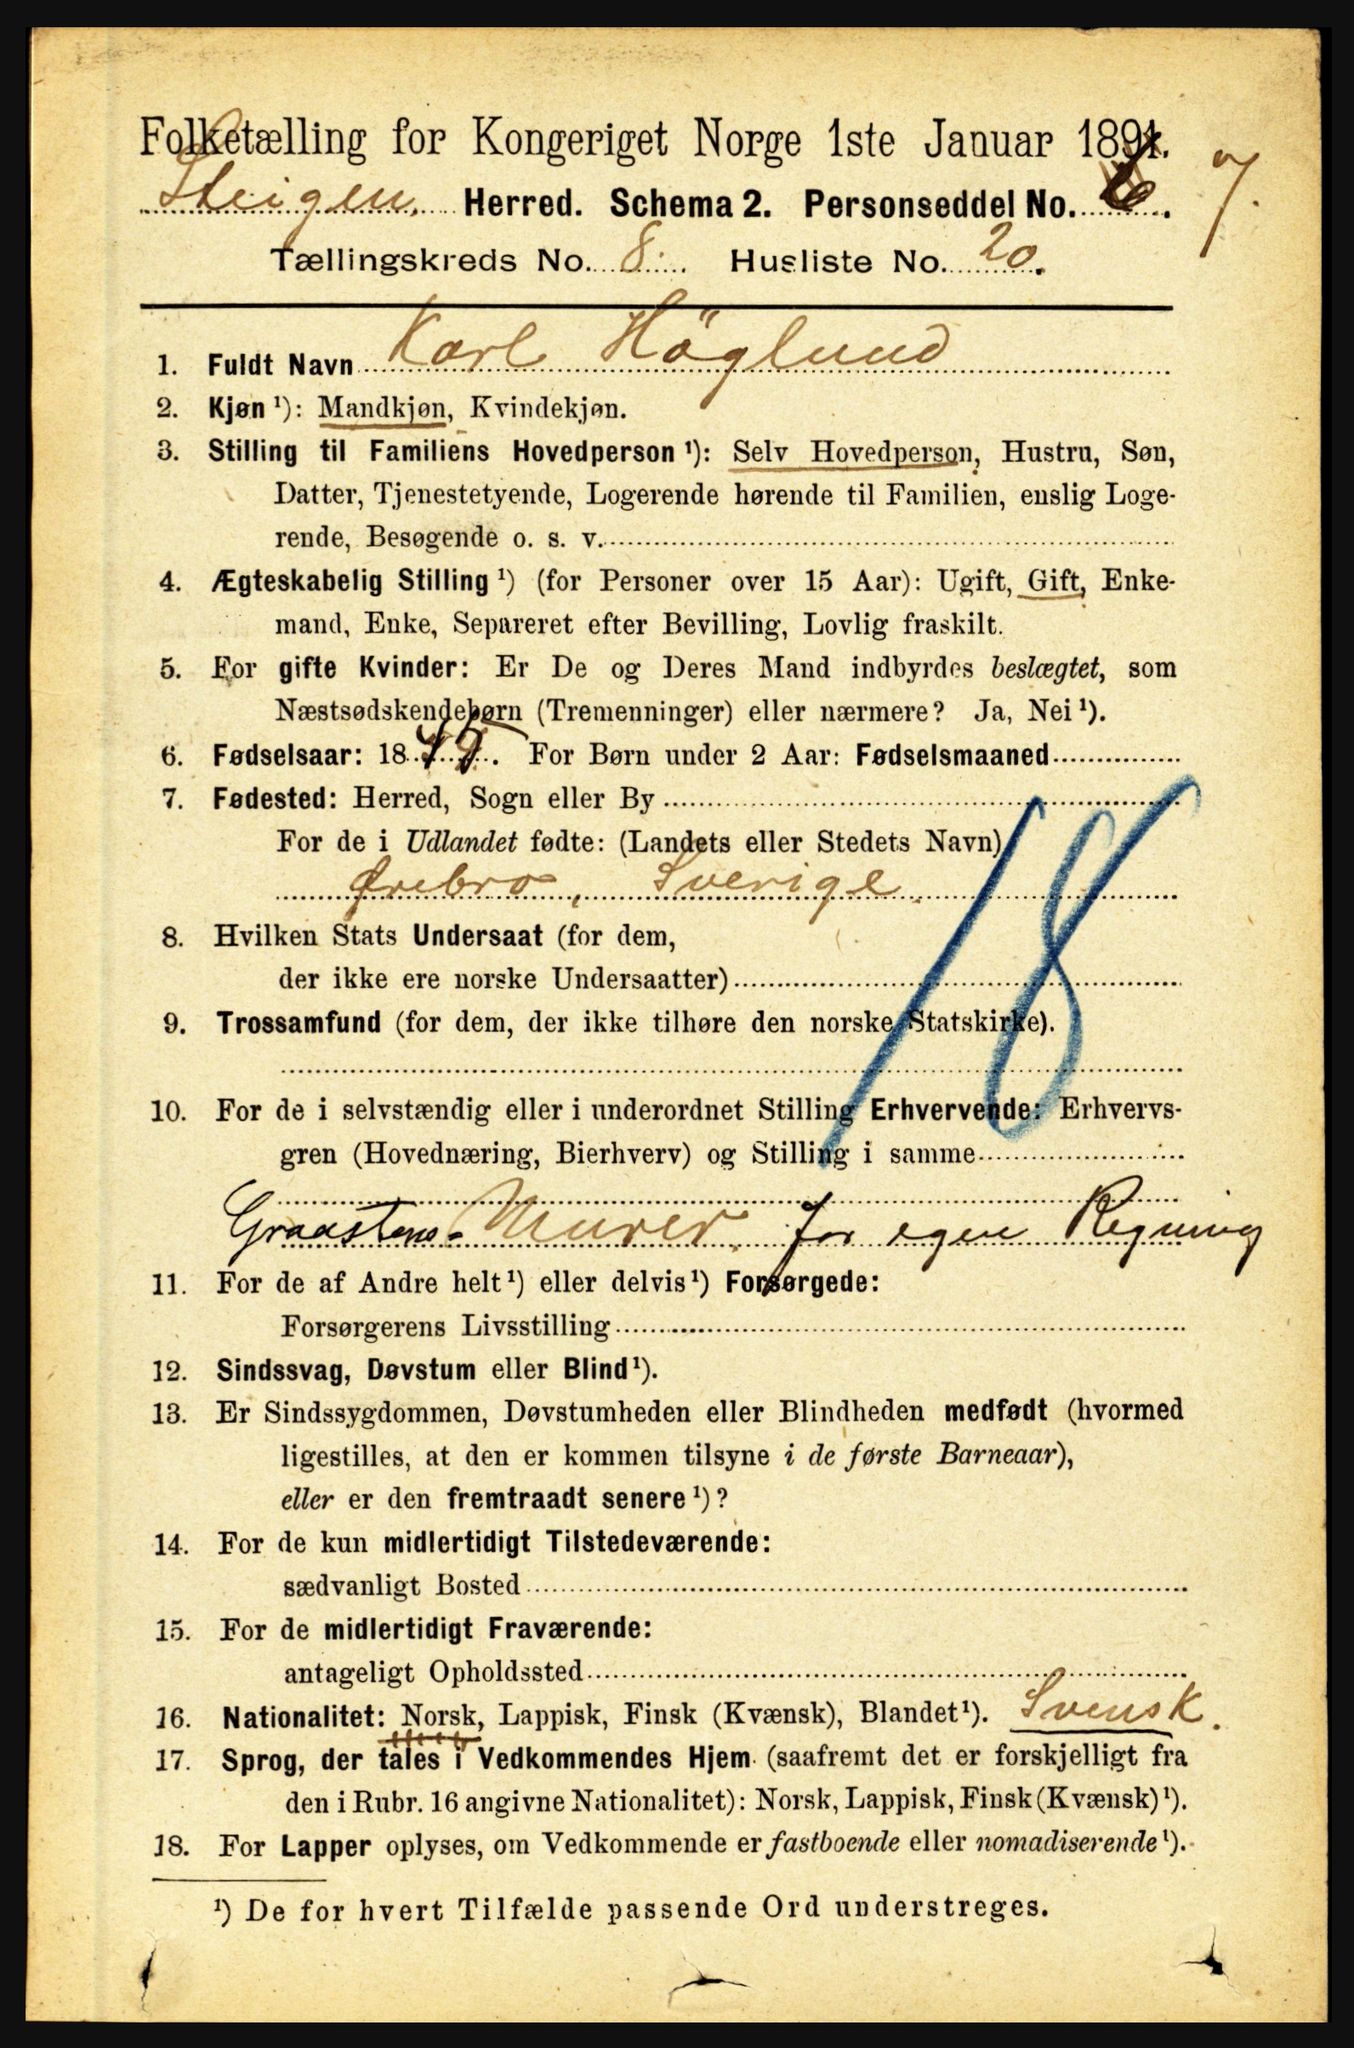 Folketælling for Kongeriget Norge 1ste Januar 1891.
Steigen. Herred. Schema 2. Personseddel No. 6. 7.
Tællingskreds No. 8. Husliste No. 20.
1. Fuldt Navn Karl Höglund
2. Kjøn ¹): Mandkjøn, Kvindekjøn.
3. Stilling til Familiens Hovedperson ¹): Selv Hovedperson, Hustru, Søn,
Datter, Tjenestetyende, Logerende hørende til Familien, enslig Loge-
rende, Besøgende o. s. v.
4. Ægteskabelig Stilling ¹) (for Personer over 15 Aar): Ugift, Gift, Enke-
mand, Enke, Separeret efter Bevilling, Lovlig fraskilt.
5. For gifte Kvinder: Er De og Deres Mand indbyrdes beslægtet, som
Næstsødskendebørn (Tremenninger) eller nærmere? Ja, Nei ¹).
6. Fødselsaar: 18 . For Børn under 2 Aar: Fødselsmaaned
7. Fødested: Herred, Sogn eller By
For de i Udlandet fødte: (Landets eller Stedets Navn)
Ørebro, Sverige.
18
8. Hvilken Stats Undersaat (for dem,
der ikke ere norske Undersaatter)
9. Trossamfund (for dem, der ikke tilhøre den norske Statskirke).
10. For de i selvstændig eller i underordnet Stilling Erhvervende: Erhvervs-
gren (Hovednæring, Bierhverv) og Stilling i samme
Graastens- Murer. for egen Regning
11. For de af Andre helt ¹) eller delvis ¹) Forsørgede:
Forsørgerens Livsstilling
12. Sindssvag, Døvstum eller Blind ¹).
13. Er Sindssygdommen, Døvstumheden eller Blindheden medfødt (hvormed
ligestilles, at den er kommen tilsyne i de første Barneaar),
eller er den fremtraadt senere ¹)?
14. For de kun midlertidigt Tilstedeværende:
sædvanligt Bosted
15. For de midlertidigt Fraværende:
antageligt Opholdssted
16. Nationalitet: Norsk, Lappisk, Finsk (Kvænsk), Blandet ¹). Svensk.
17. Sprog, der tales i Vedkommendes Hjem (saafremt det er forskjelligt fra
den i Rubr. 16 angivne Nationalitet): Norsk, Lappisk, Finsk (Kvænsk) ¹).
18. For Lapper oplyses, om Vedkommende er fastboende eller nomadiserende ¹).
¹) De for hvert Tilfælde passende Ord understreges.